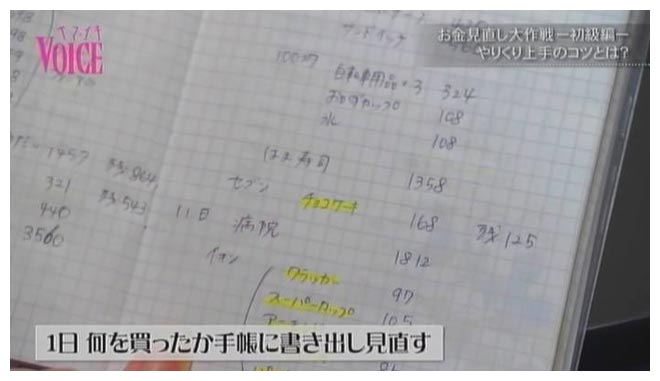 イマ・イキ
VOICE
お金見直し大作戦ー初級編ー
やりくり上手のコツとは?
サンドイッチ
100均 自転車用品×3 324
おかずカップ 108
水 108
はま寿司 1358
セブン チョコケーキ 168 残125
11日 病院 1812
イオン
クラッカー 97
スーパーカップ 105
1457 残864
321 残543
440
3560
1日 何を買ったか手帳に書き出し見直す